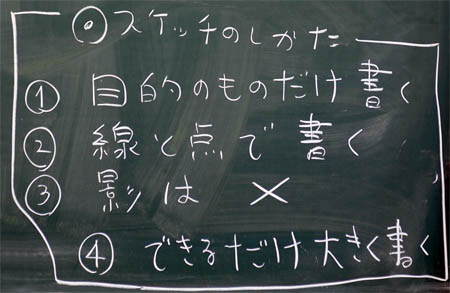 ⦿スケッチのしかた
① 目的のものだけ書く
② 線と点で書く
③ 影は ×
④ できるだけ大きく書く